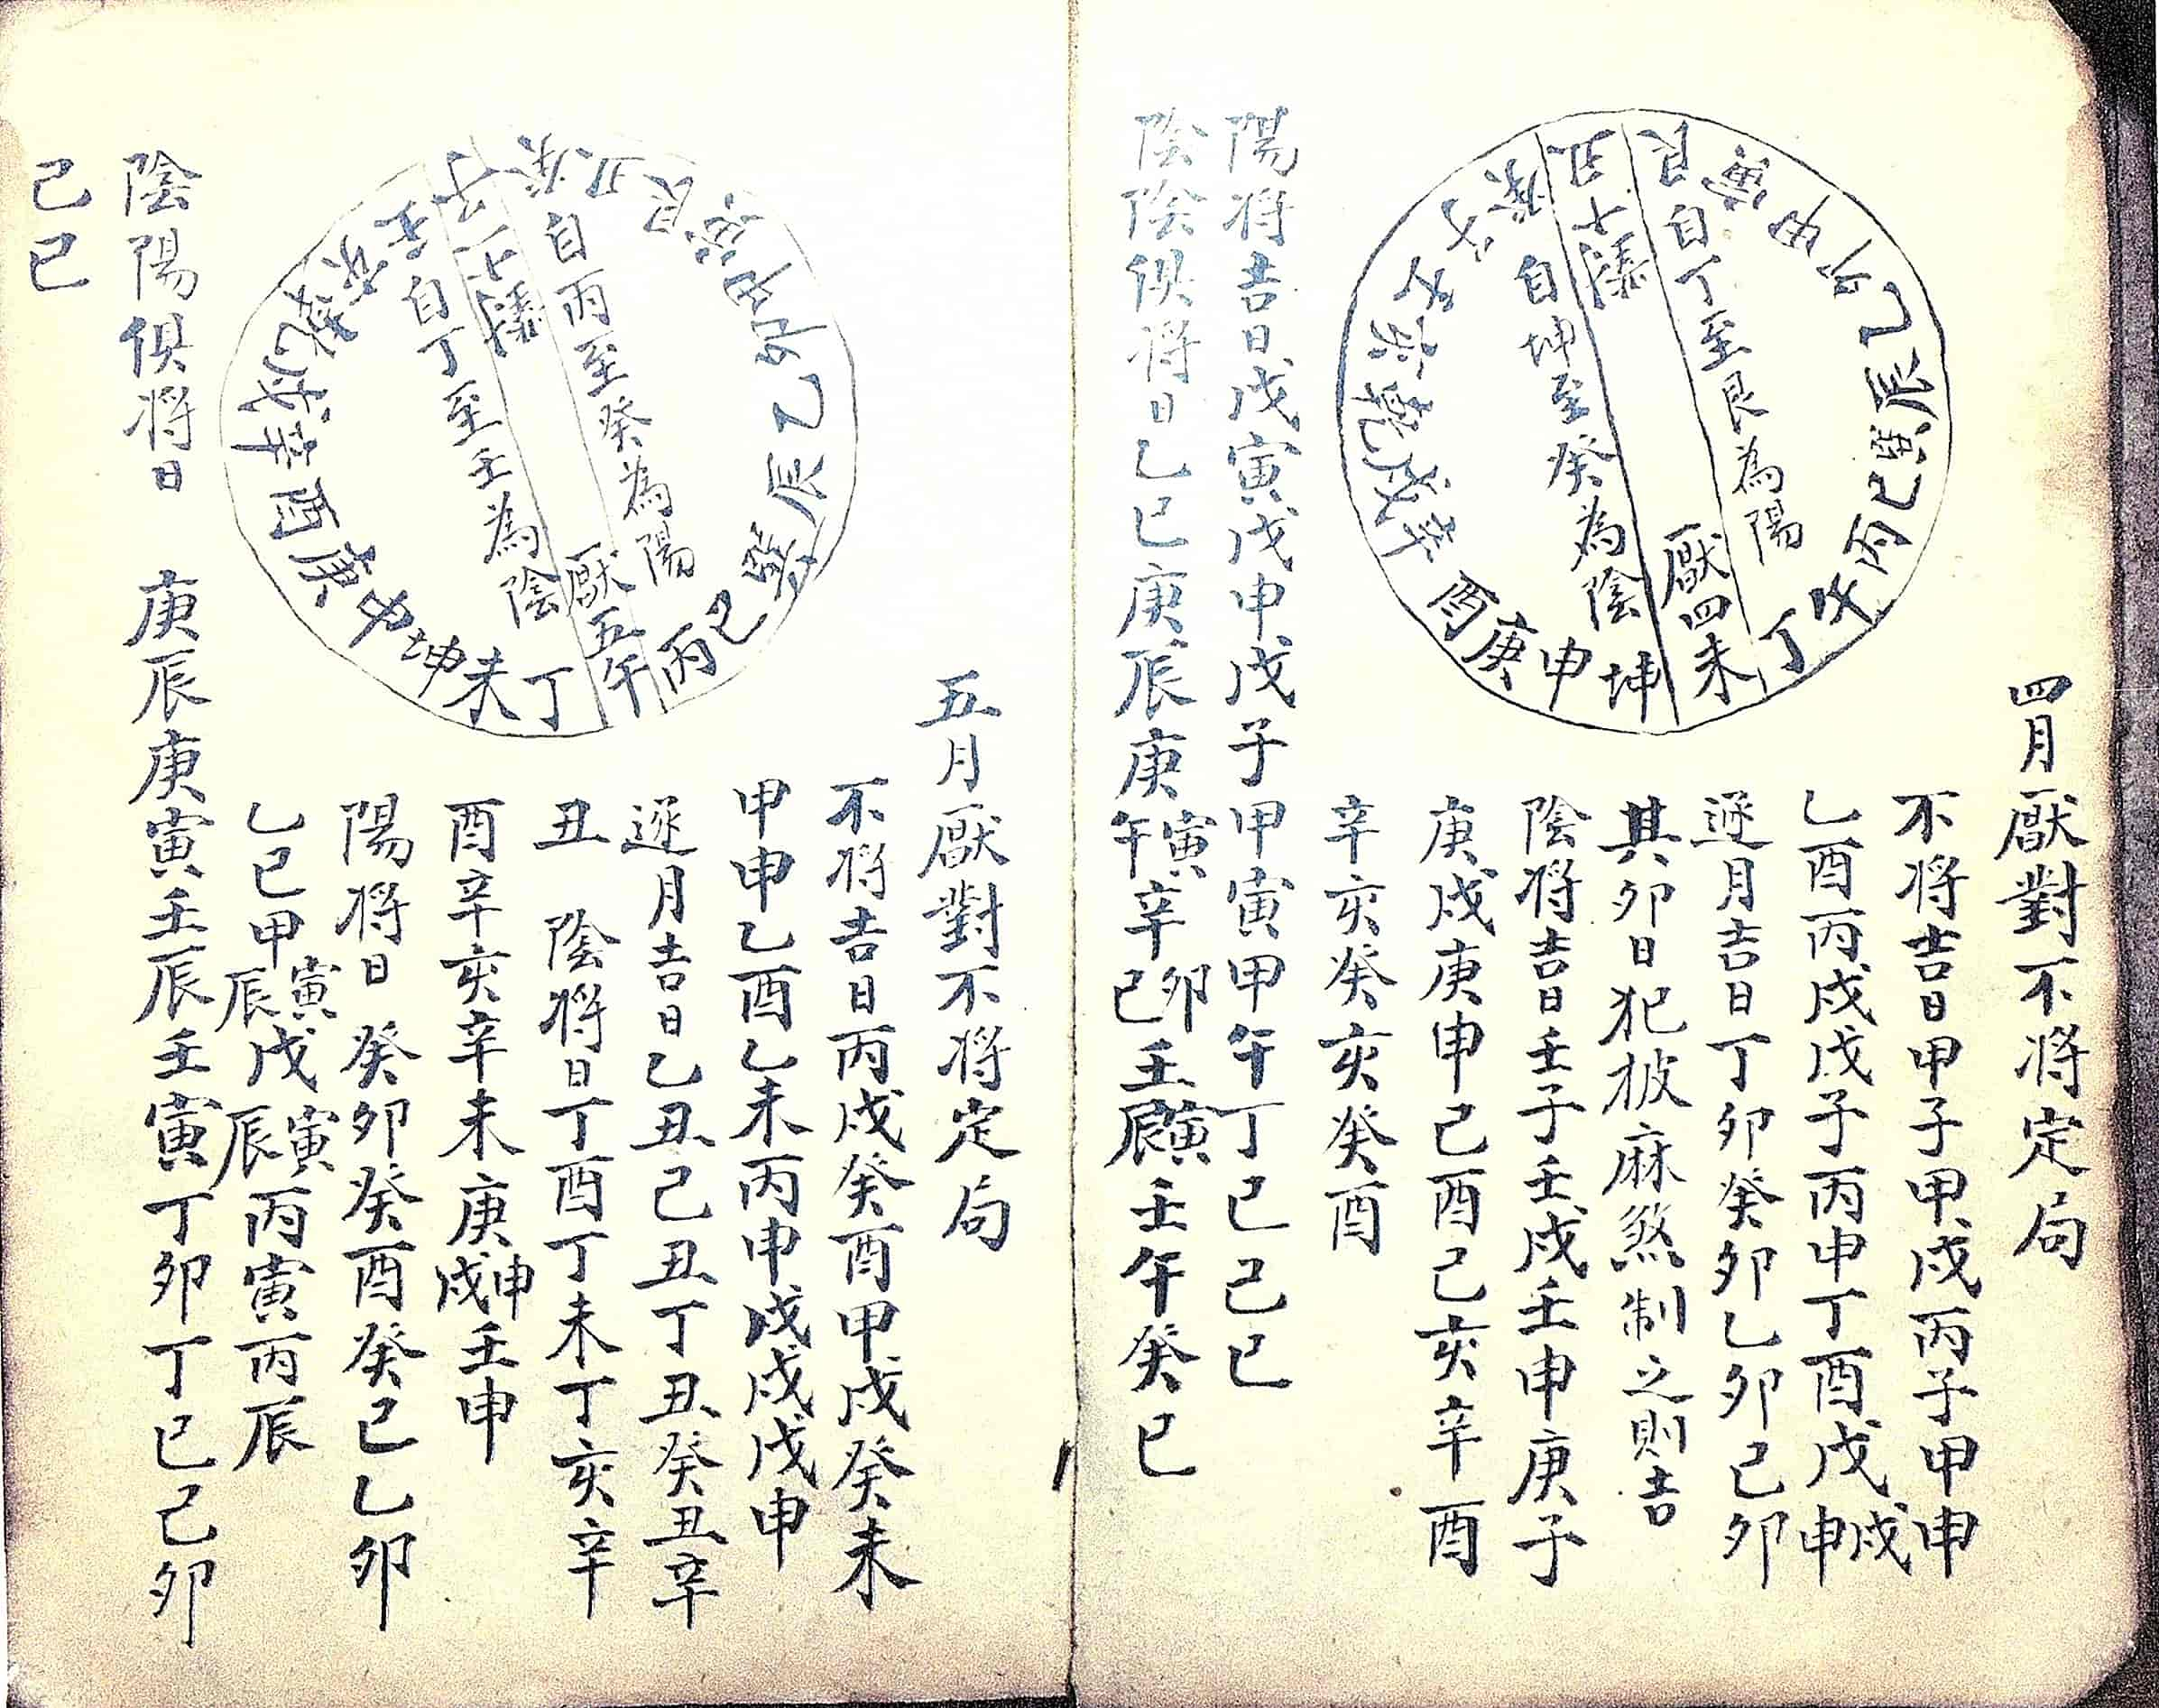 四月厭對不将定局
不将吉日甲子甲戌丙子甲申
乙酉丙戌戊子丙申丁酉戊戌申
逐月吉日丁卯癸卯乙卯己卯
其卯日犯披麻煞制之則吉
陰将吉日壬子壬戌壬申庚子
庚戌庚申己酉己亥辛酉
辛亥癸亥癸酉
厭四未
自丁至艮為陽
自坤至癸為陰
丁
坤申庚酉辛戌乾亥
丑
艮
甲卯乙辰巽巳丙
陽将吉日戊寅戊申戊子甲寅甲午丁巳己巳
陰陰俱将日乙巳庚辰庚寅午辛卯巳壬寅辰壬午癸巳
五月厭對不将定局
不将吉日丙戌癸酉甲戌癸未
甲申乙酉乙未丙申戊戌戊申
逐月吉日乙丑己丑丁丑癸丑辛
丑 陰将日丁酉丁未丁亥辛
酉辛亥辛未庚申戌壬申
陽将日癸卯癸酉癸巳乙卯
乙巳甲寅辰戊寅辰丙寅丙辰
厭五午
自丙至癸為陽
自丁至壬為陰
丁未坤申庚酉辛戌乾亥壬
子
癸丑艮寅甲卯乙辰巽巳丙
陰陽俱将日 庚辰庚寅壬辰壬寅丁卯丁巳己卯
己巳